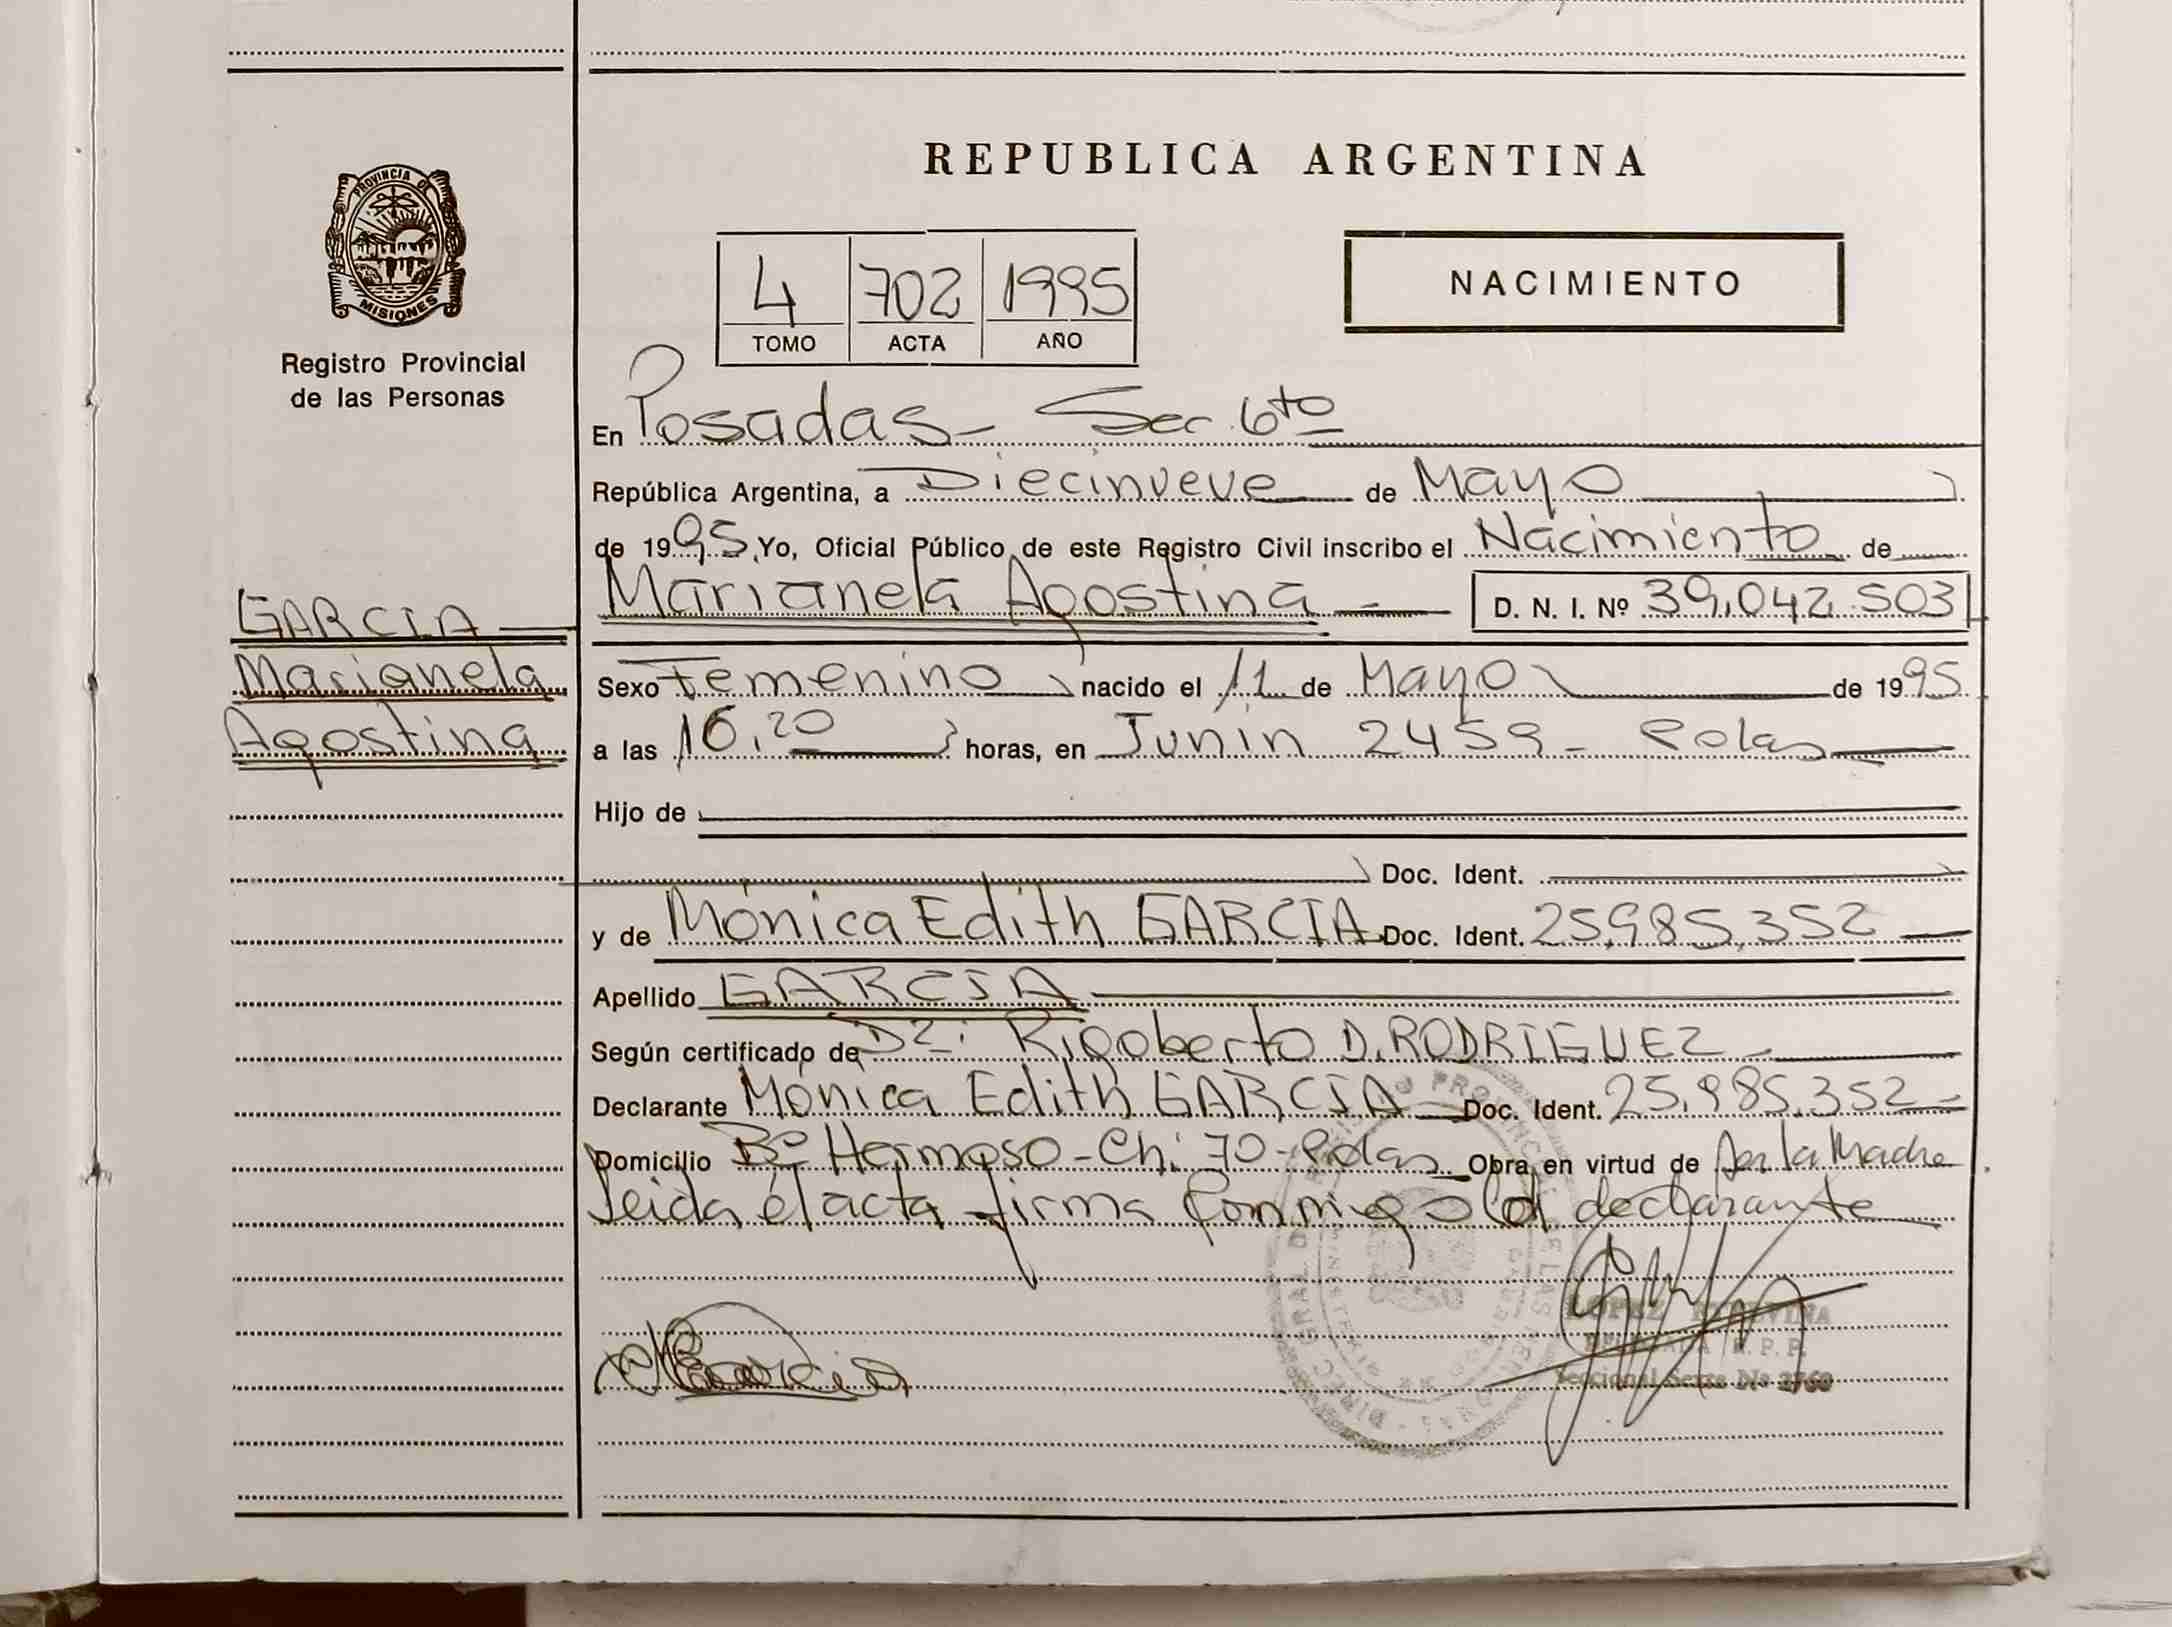 PROVINCIA DE
MISIONES
Registro Provincial
de las Personas
GARCIA
Marianela
Agostina
REPUBLICA ARGENTINA
4 702 1995
TOMO ACTA AÑO
NACIMIENTO
En Posadas - Sec. 6to
República Argentina, a Diecinueve de Mayo
de 1995, Yo, Oficial Público de este Registro Civil inscribo el Nacimiento de
Marianela Agostina D. N. I. Nº 39.042.503
Sexo Femenino nacido el 11 de Mayo de 1995
a las 16,20 horas, en Junin 2459 - Pdas
Hijo de
Doc. Ident.
y de Mónica Edith GARCIA Doc. Ident. 25.985.352
Apellido GARCIA
Según certificado de Dr: Rigoberto D. RODRIGUEZ
Declarante Mónica Edith GARCIA Doc. Ident. 25.985.352
Domicilio Bº Hermoso - Ch: 70 - Pdas Obra en virtud de Ser la Madre
Leida el acta firma conmigo la declarante
LOPEZ
R. P. P.
Seccional Sexta Nº 2760